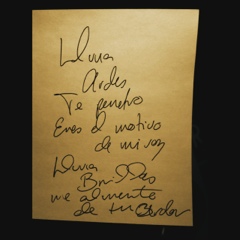 Luna
Ardes
Te penetro
Eres el motivo
de mi voz
Luna
Brillas
me alimento
de tu